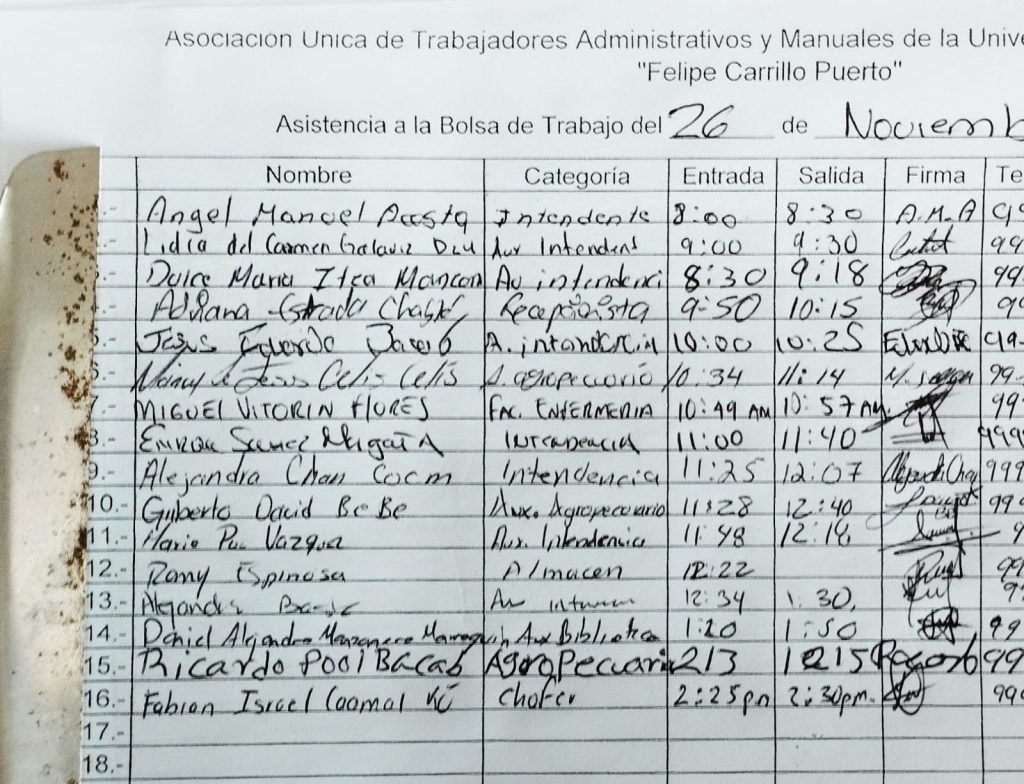 Asociación Única de Trabajadores Administrativos y Manuales de la Unive
"Felipe Carrillo Puerto"
Asistencia a la Bolsa de Trabajo del 26 de Noviemb
Nombre Categoría Entrada Salida Firma Te
Angel Manuel Acosta Intendente 8:00 8:30 A.M.A 99
Lidia del Carmen Galaviz Dzu Aux Intendent 9:00 9:30 99
Dulce Maria Itza Au intendenci 8:30 9:18 99
Adriana Estrada Chablé Recepcionista 9:50 10:15 99
Jesus Eduardo Bacab A. intendencia 10:00 10:25 99-
de Jesus Celis Celis A. agropecuario 10:34 11:14 99-
7.- MIGUEL VITORIN FLORES FAC. ENFERMERIA 10:49 AM 10:57 AM 99
8.- INTENDENCIA 11:00 11:40 999
9.- Alejandra Chan Cocom Intendencia 11:25 12:07 Alejandra Chan 999
10.- Gilberto David Be Be Aux. Agropecuario 11:28 12:40 99
11.- Mario Puc Aux. Intendencia 11:48 12:18
12.- Romy Espinosa Almacen 12:22 99
13.- Alejandra Au 12:34 1:30. 99
14.- Daniel Alejandro Manzanero Marroquin Aux Biblioteca 1:20 1:50 99
15.- Ricardo Pool Bacab Agropecuaria 213 99
16.- Fabian Israel Coomal Kú Chofer 2:25pm 2:30pm. 99
17.-
18.-